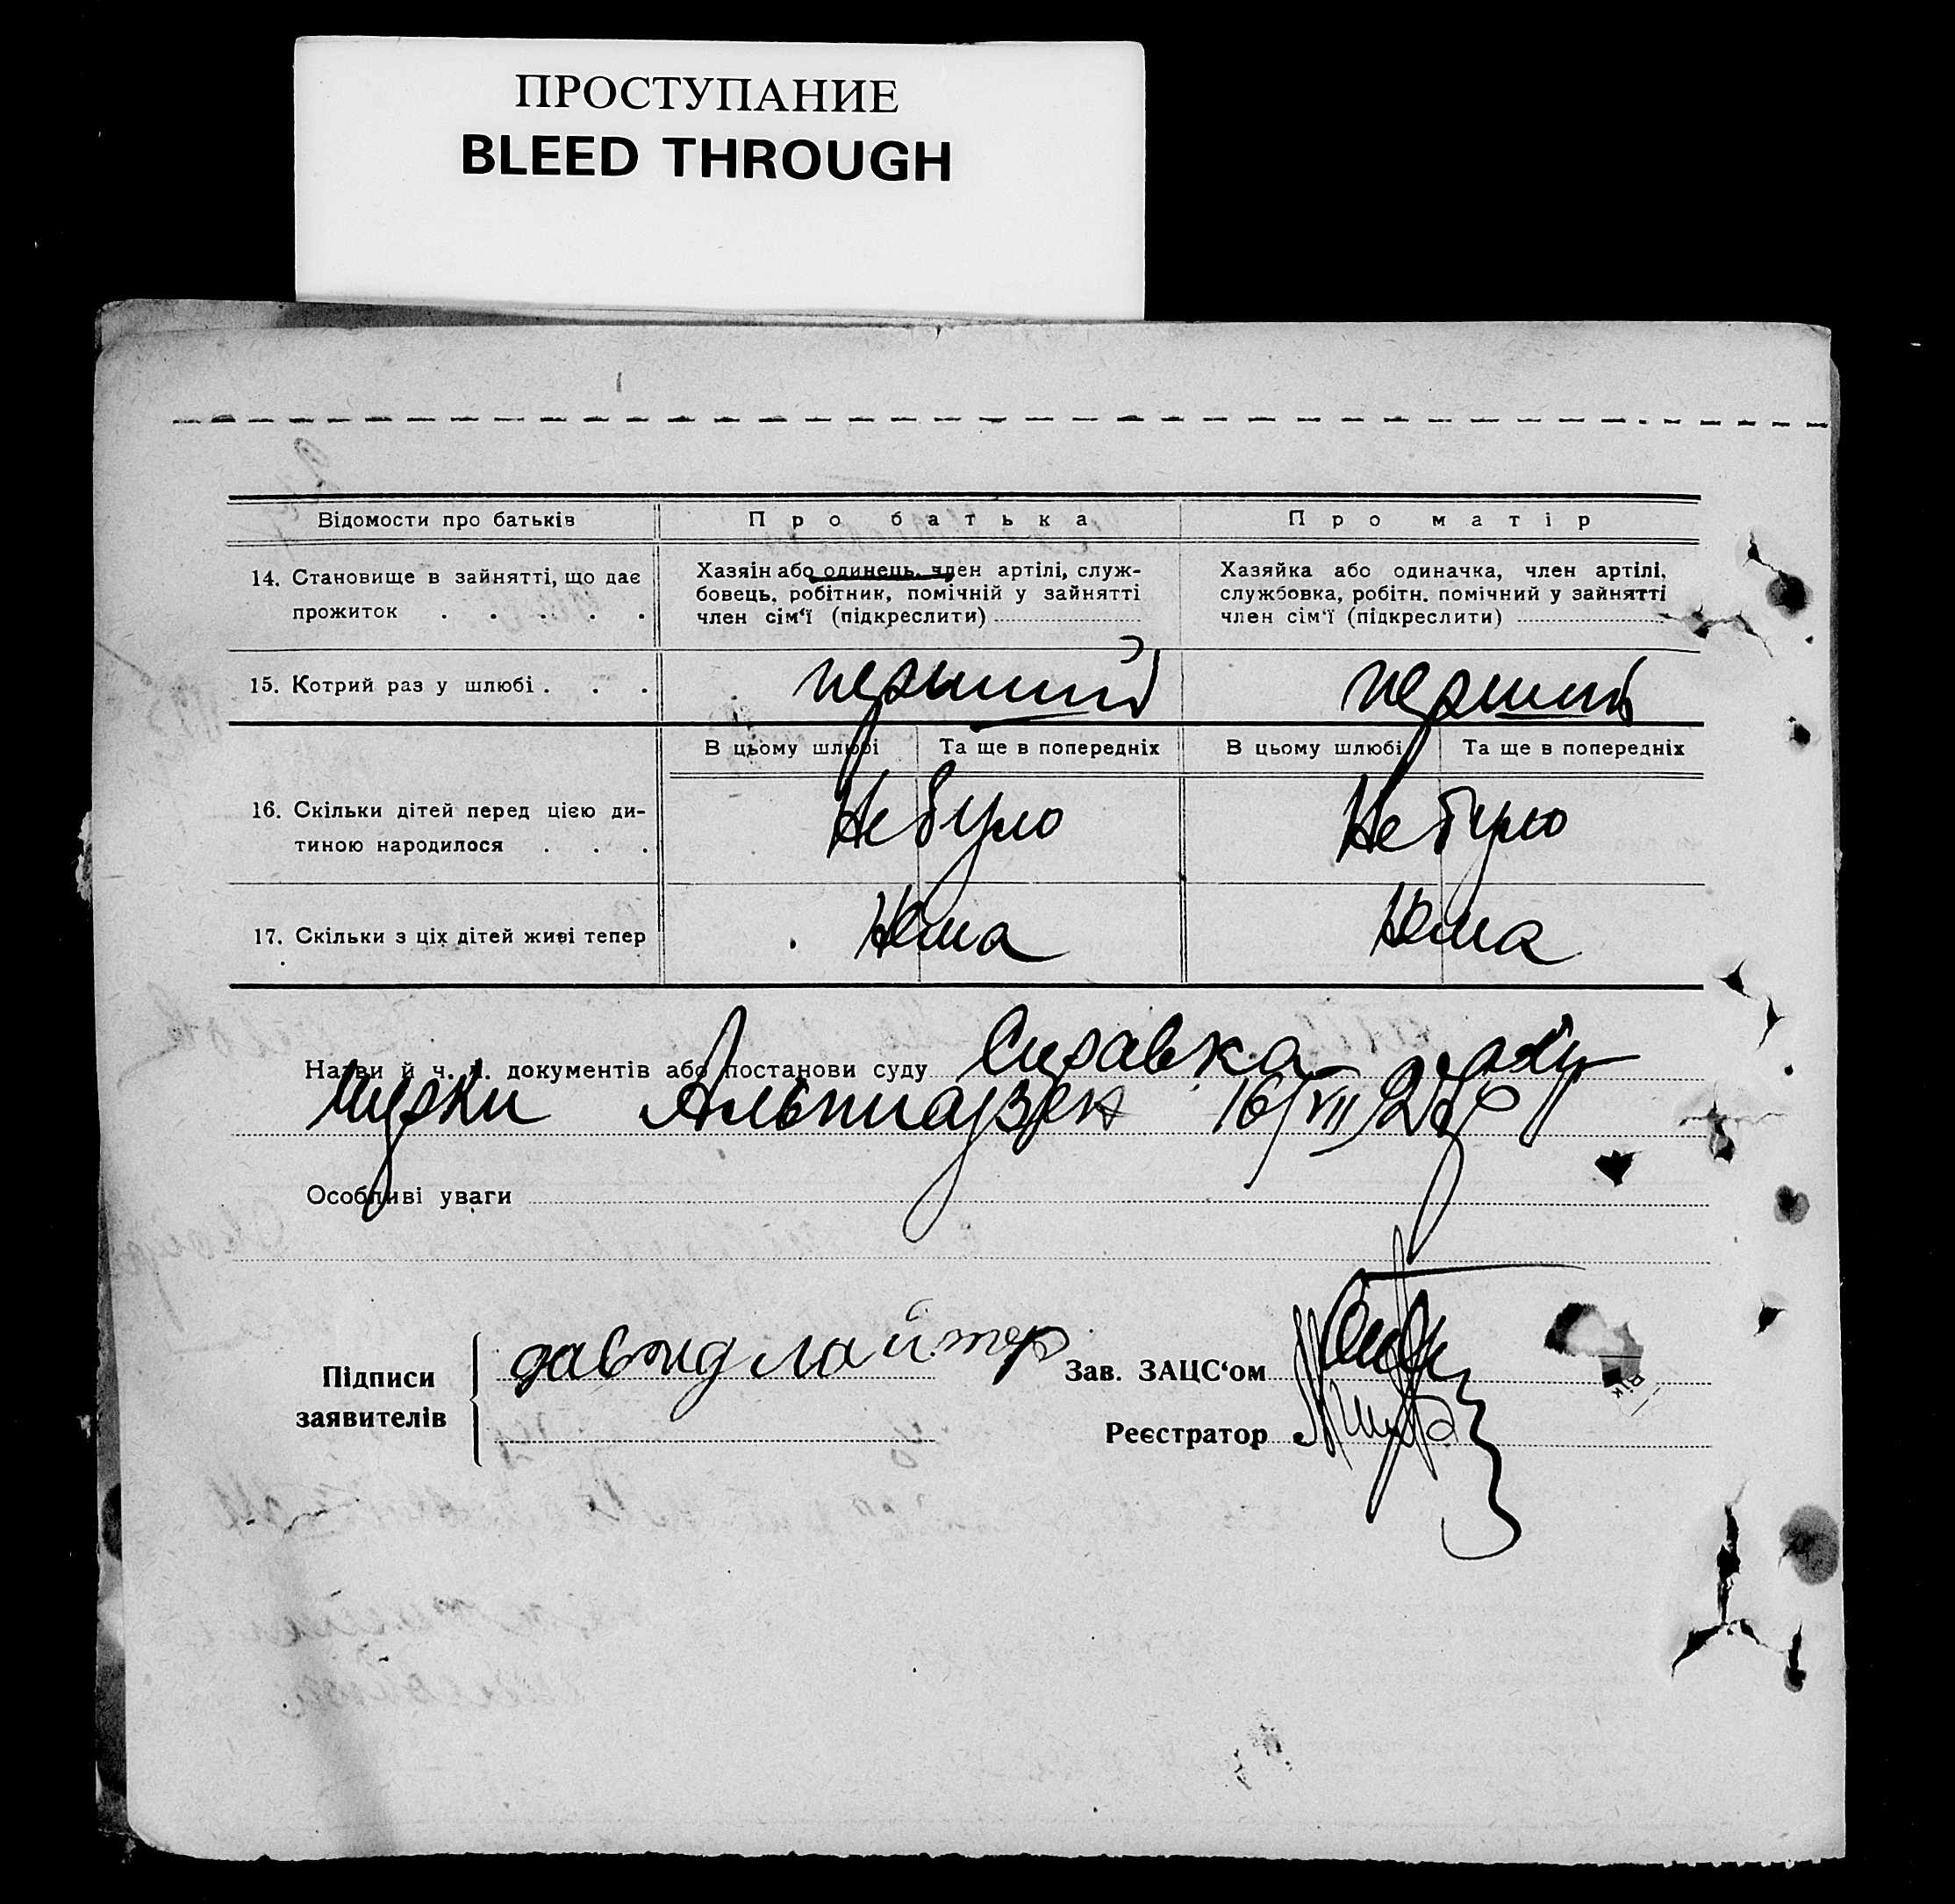 ПРОСТУПАНИЕ
BLEED THROUGH
Відомости про батьків
Про батька
Про матір
14. Становище в зайнятті, що дає
прожиток . . . . .
Хазяін або одинець, член артілі, служ-
бовець, робітник, помічній у зайнятті
член сім‘ї (підкреслити)
Хазяйка або одиначка, член артілі,
службовка, робітн. помічний у зайнятті
член сім‘ї (підкреслити)
15. Котрий раз у шлюбі . . .
перший
перший
В цьому шлюбі
Та ще в попередніх
В цьому шлюбі
Та ще в попередніх
16. Скільки дітей перед цією ди-
тиною народилося . . .
Не було
Не було
17. Скільки з ціх дітей живі тепер
Нема
Нема
Назви й ч. ч. документів або постанови суду Справка
16/VII
Особливі уваги
Підписи
заявителів
давид лайтер
Зав. ЗАЦС‘ом
Реєстратор